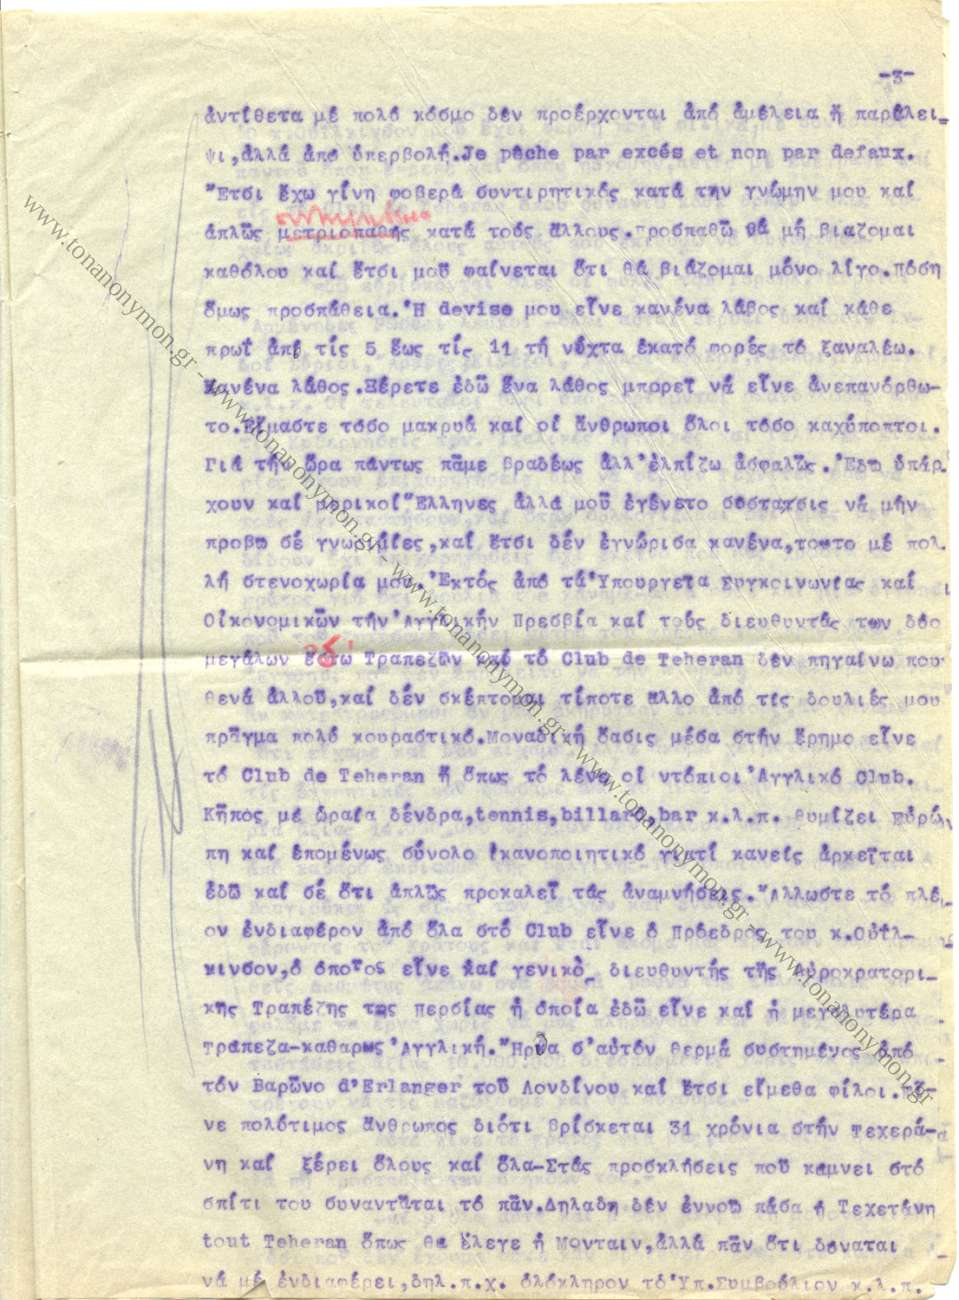 -3-
ἀντίθετα μέ πολύ κόσμο δέν προέρχονται ἀπό ἀμέλεια ἤ παράλει_
ψι,ἀλλά ἀπό ὑπερβολή.Je pêche par excés et non par defaux.
Ἔτσι ἔχω γίνη φοβερά συντιρητικός κατά την γνώμην μου καί
ἁπλῶς μετριοπαθής κατά τούς ἄλλους.Προσπαθῶ θά μή βιαζομαι
καθόλου καί ἔτσι μοῦ φαίνεται ὅτι θά βιάζομαι μόνο λίγο.Πόση
ὅμως προσπάθεια.Ἡ devise μου εἶνε κανένα λάβος καί κάθε
πρωΐ ἀπό τίς 5 ἕως τίς 11 τή νύχτα ἑκατό φορές τό ξαναλέω.
Κανένα λάθος.Ξέρετε ἐδῶ ἕνα λάθος μπορεῖ νά εἶνε ἀνεπανόρθω-
το.Εἴμαστε τόσο μακρυά καί οἱ ἄνθρωποι ὅλοι τόσο καχύποπτοι.
Γιά τήν ὥρα πάντως πᾶμε βραδέως ἀλλ'ἐλπίζω ἀσφαλῶς.Ἐδω ὑπάρ_
χουν καί μερικοί Ἕλληνες ἀλλά μοῦ ἐγένετο σύστατσις νά μήν
προβω σέ γνωριμίες,καί ἔτσι δέν ἐγνώρισα κανένα,τουτο μέ πολ_
λή στενοχωρία μου.Ἐκτός ἀπό τά Ὑπουργεῖα Συγκοινωνίας καί
Οἰκονομικῶν τήν Ἀγγλικήν Πρεσβία καί τούς διευθυντάς των δύο
μεγάλων ἐδῶ Τραπεζῶν από τό Club de Teheran δέν πηγαίνω που-
θενά ἀλλοῦ,καί δέν σκέπτομαι τίποτε ἄλλο ἀπό τίς δουλιές μου
πρᾶγμα πολύ κουραστικό.Μοναδική ὄασις μέσα στήν ἔρημο εἶνε
τό Club de Teheran ἤ ὅπως τό λένε οἱ ντόπιοι Ἀγγλικό Club.
Κῆπος μέ ὡραῖα δένδρα,tennis,billard,bar κ.λ.π. θυμίζει Εὐρώ_
πη καί ἑπομένως σύνολο ἱκανοποιητικό γιατί κανείς ἀρκεῖται
ἐδῶ καί σέ ὅτι ἁπλῶς προκαλεῖ τάς ἀναμνήσεις.Ἄλλωστε τό πλέ_
ον ἐνδιαφέρον ἀπό ὅλα στό Club εἶνε ὁ Πρόεδρος του κ.Οὐΐλ-
κινσον,ὁ ὁποῖος εἶνε καί γενικός διευθυντής τῆς Αὐροκρατορι_
κης Τραπέζης της Περσίας ἡ ὁποία ἐδῶ εἶνε καί ἡ μεγαλυτέρα
Τράπεζα-καθαρως Ἀγγλική.Ἤρθα σ'αὐτόν θερμά συστημένος ἀπό
τόν Βαρῶνο d'Erlanger τοῦ Λονδίνου καί ἔτσι εἴμεθα φίλοι.Εἶ-
νε πολύτιμος ἄνθρωπος διότι βρίσκεται 31 χρόνια στήν Τεχερά-
νη καί ξέρει ὅλους καί ὅλα-Στάς προσκλήσεις πού καμνει στό
σπίτι του συναντᾶται τό πᾶν.Δηλαδη δέν ἐννοῶ πάσα ἡ Τεχετάνη
tout Teheran ὅπως θα ἔλεγε ἡ Μονταιν,ἀλλά πᾶν ὅτι δυναται
νά μέ ἐνδιαφέρει,δηλ.π.χ. ὁλόκληρον τό Ὑπ.Συμβούλιον κ.λ.π.
www.tonanonymon.gr - www.tonanonymon.gr - www.tonanonymon.gr - www.tonanonymon.gr - www.tonanonymon.gr